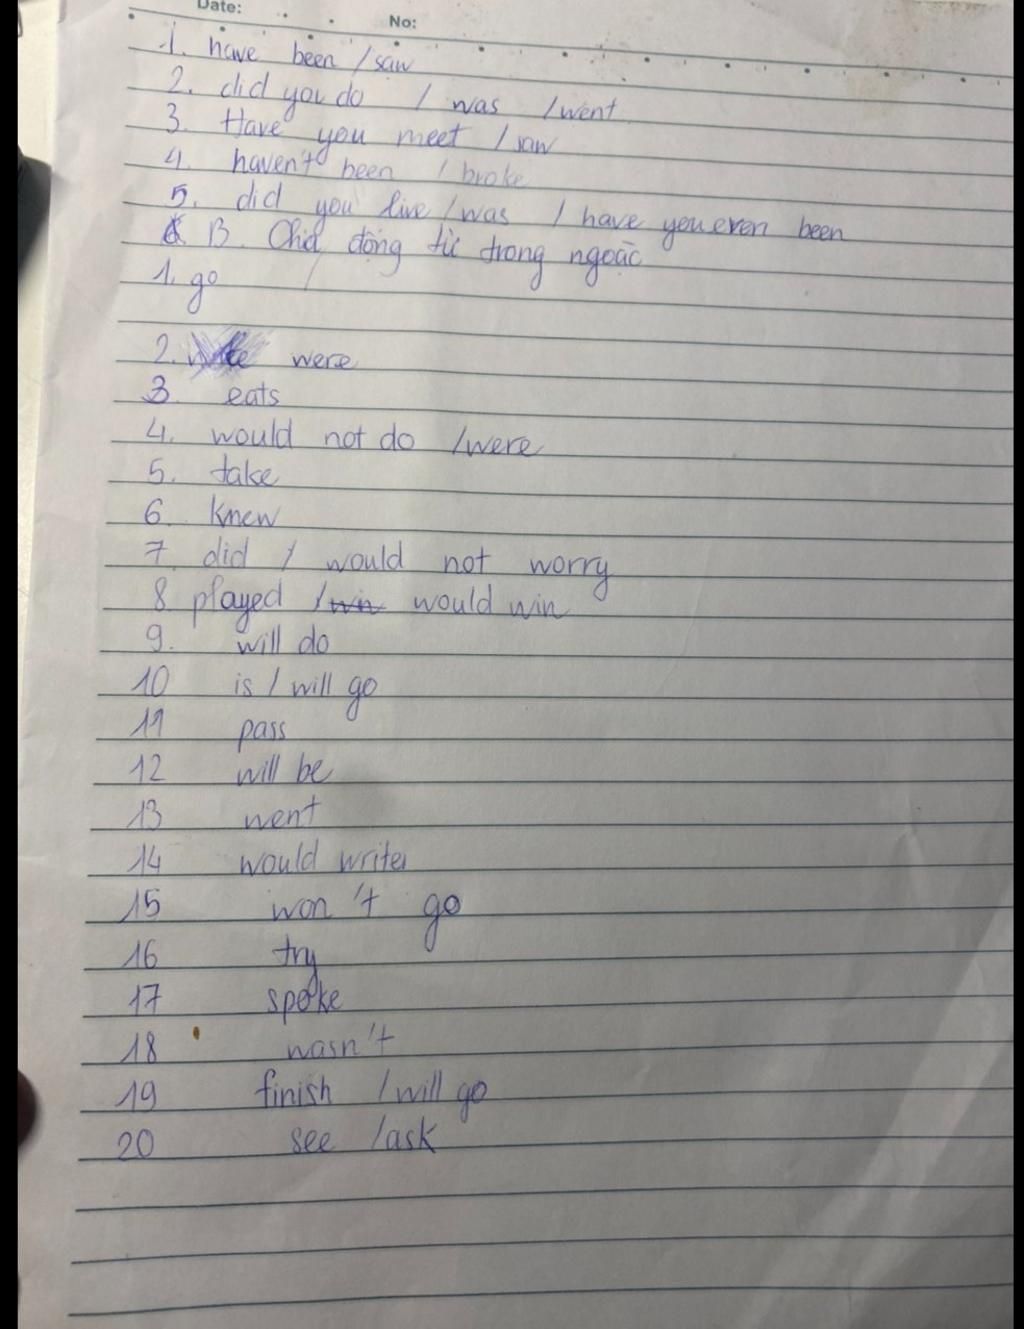 Date:
No:
1. have been / saw
2. did you do / was / went
3. Have you meet / saw
4. haven't been / broke
5. did you live / was / have you even been
B. Chia động từ trong ngoặc
1. go
2. were
3 eats
4. would not do / were
5. take
6 knew
7 did / would not worry
8 played / win would win
9. will do
10 is / will go
11 pass
12 will be
13 went
14 would write
15 won't go
16 try
17 spoke
18 wasn't
19 finish / will go
20 see / ask